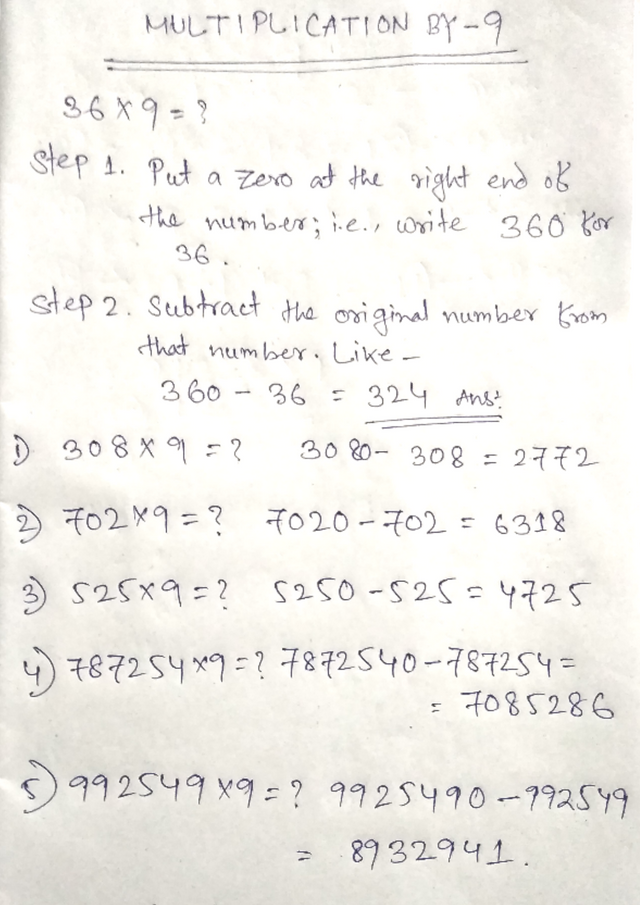 MULTIPLICATION BY-9
36 X 9 = ?
Step 1. Put a zero at the right end of
the number; i.e., write 360 for
36.
Step 2. Subtract the original number from
that number. Like –
360 – 36 = 324 Ans:
1) 308 X 9 = ? 3080 – 308 = 2772
2) 702 X 9 = ? 7020 – 702 = 6318
3) 525 X 9 = ? 5250 – 525 = 4725
4) 787254 X 9 = ? 7872540 – 787254 =
= 7085286
5) 992549 X 9 = ? 9925490 – 992549
= 8932941.